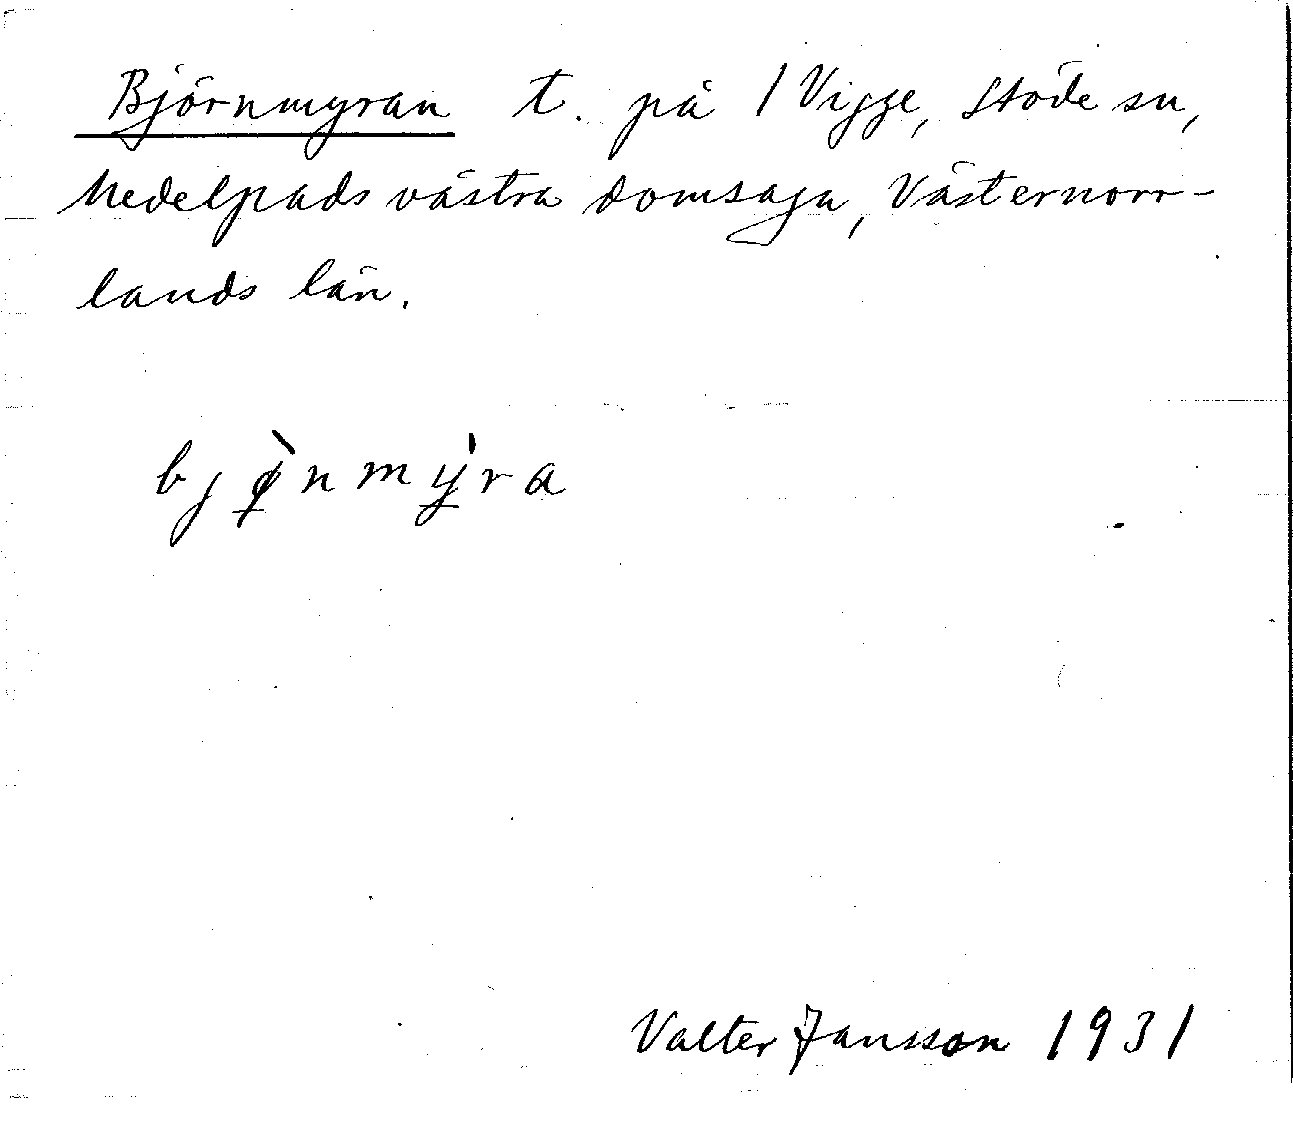 Björnmyran t. på 1 Vigge, Stöde sn,
Medelpads västra domsaga, Västernorr-
lands län.
bjø̀nmy̍ra
Valter Jansson 1931